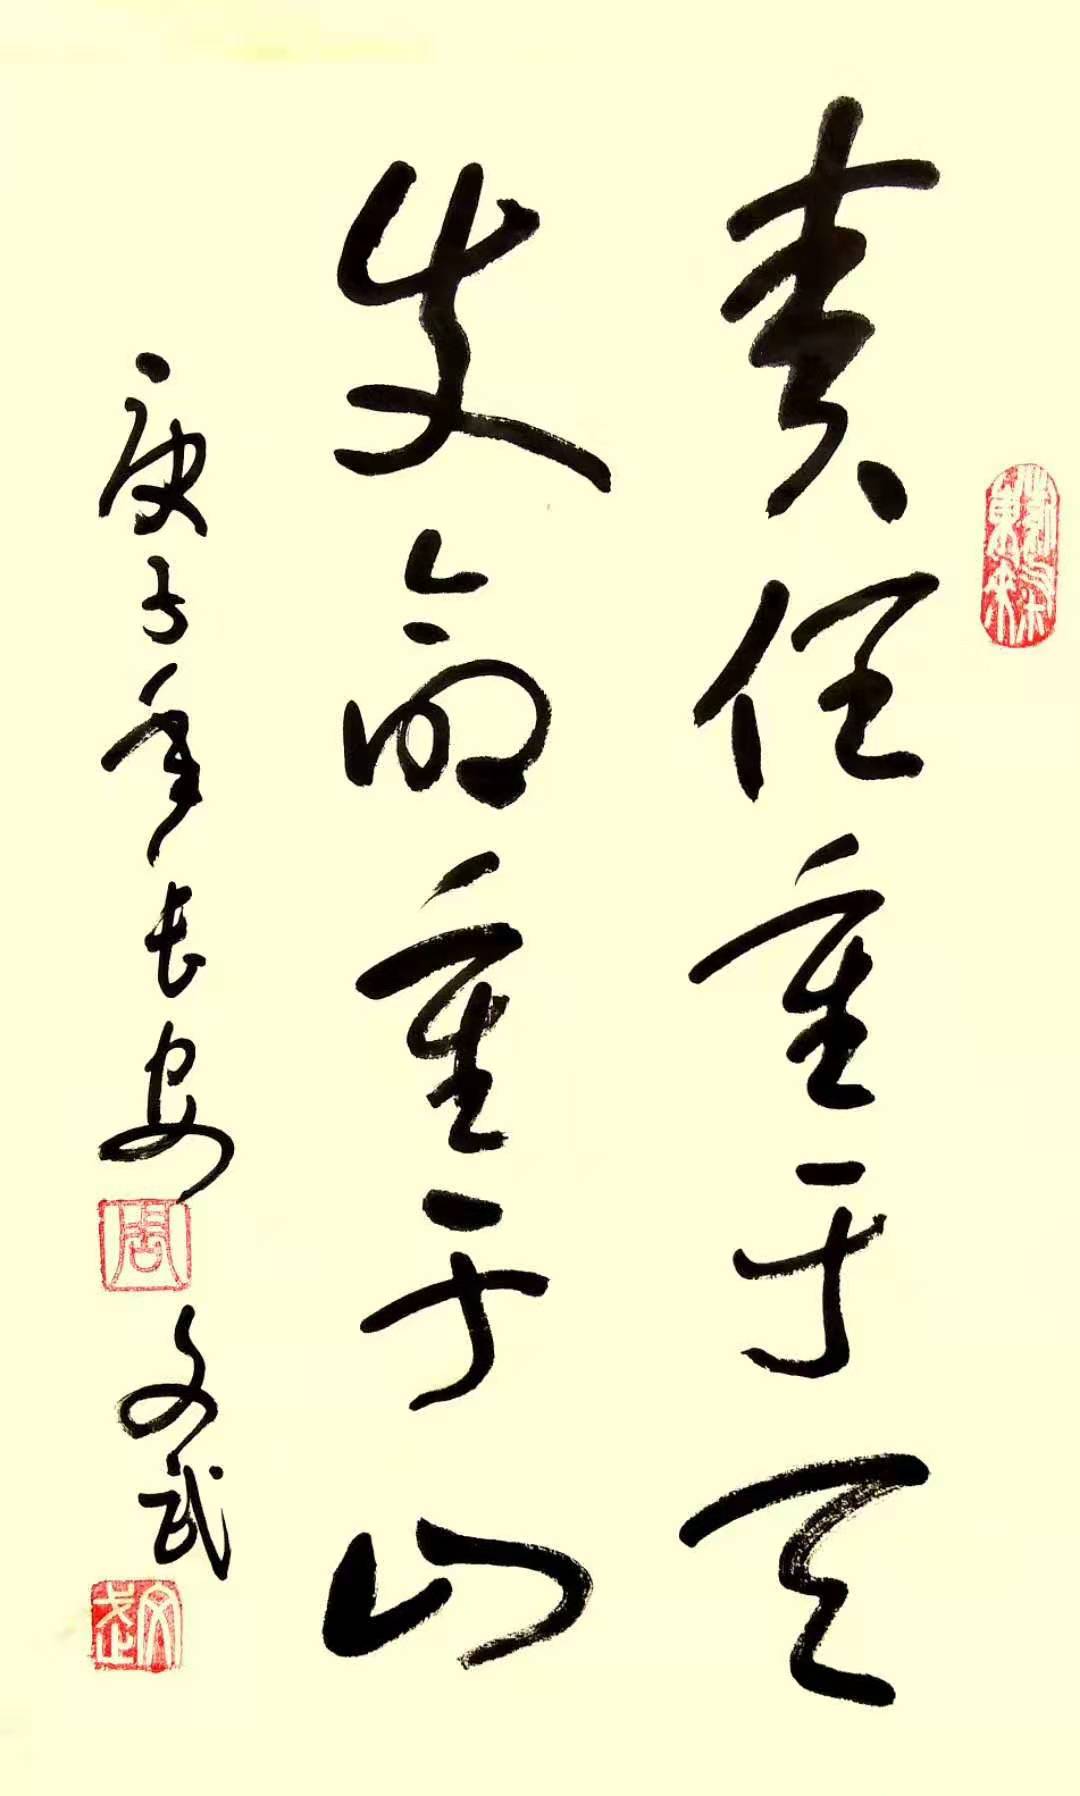 责任重于天
使命重于山
庚子年长安
周
文武
文武